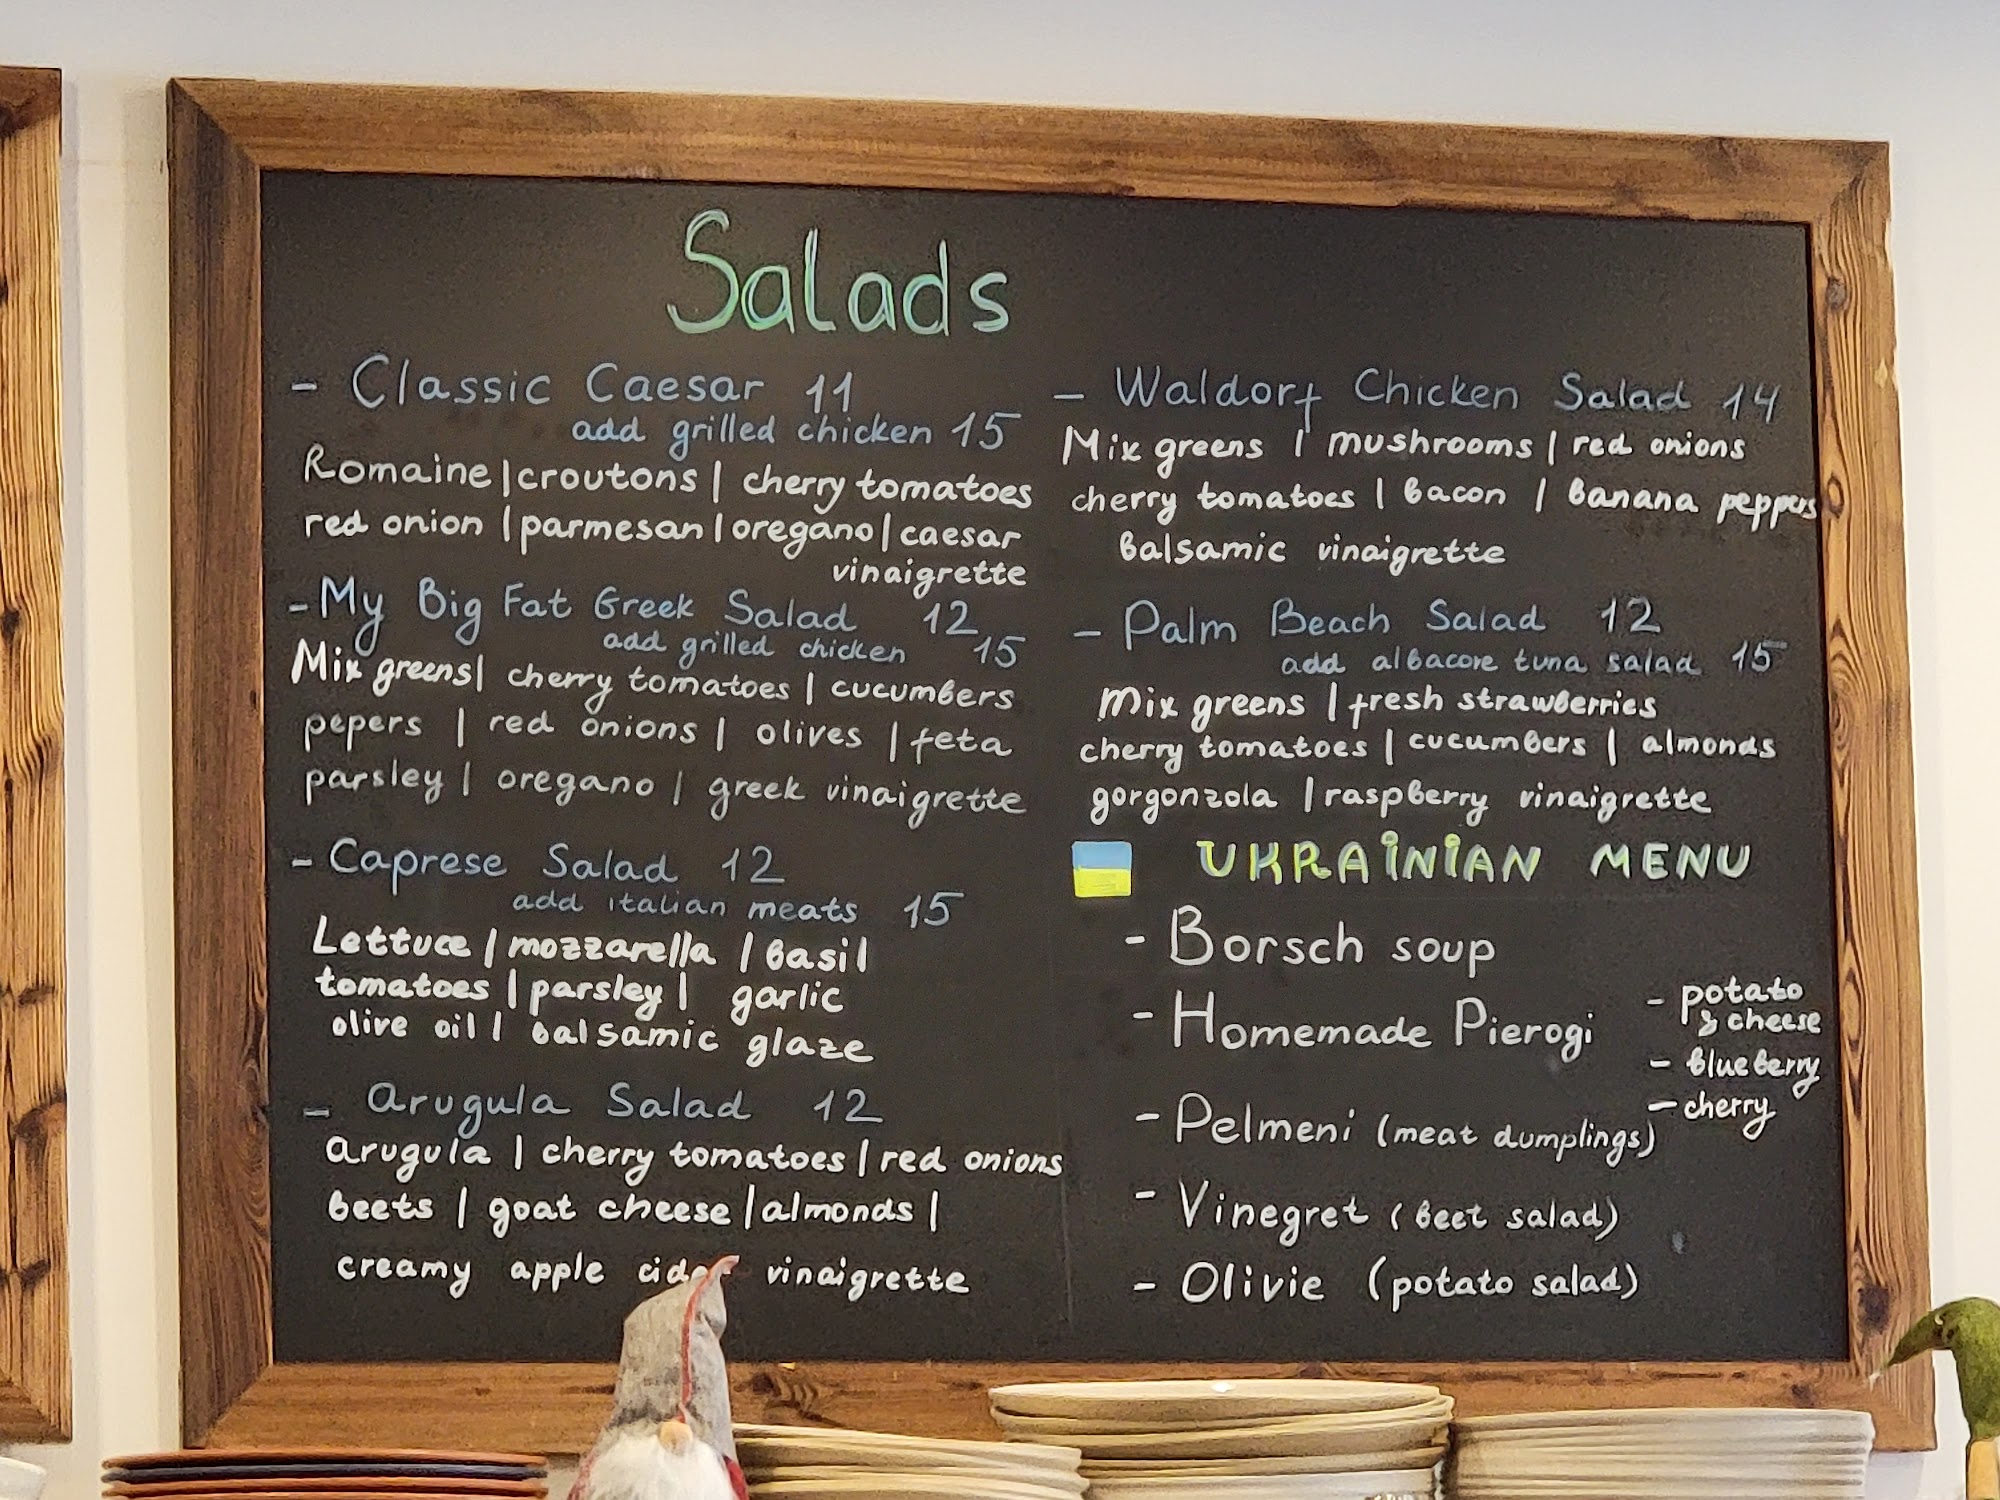 Salads
- Classic Caesar 11
add grilled chicken 15
Romaine | croutons | cherry tomatoes
red onion | parmesan | oregano | caesar
vinaigrette
- My Big Fat Greek Salad 12
add grilled chicken 15
Mix greens | cherry tomatoes | cucumbers
pepers | red onions | olives | feta
parsley | oregano | greek vinaigrette
- Caprese Salad 12
add italian meats 15
Lettuce | mozzarella | basil
tomatoes | parsley | garlic
olive oil | balsamic glaze
- Arugula Salad 12
arugula | cherry tomatoes | red onions
beets | goat cheese | almonds |
creamy apple cider vinaigrette
- Waldorf Chicken Salad 14
Mix greens | mushrooms | red onions
cherry tomatoes | bacon | banana peppers
balsamic vinaigrette
- Palm Beach Salad 12
add albacore tuna salad 15
Mix greens | fresh strawberries
cherry tomatoes | cucumbers | almonds
gorgonzola | raspberry vinaigrette
UKRAINIAN MENU
- Borsch soup
- Homemade Pierogi
- potato
& cheese
- blueberry
- cherry
- Pelmeni (meat dumplings)
- Vinegret (beet salad)
- Olivie (potato salad)